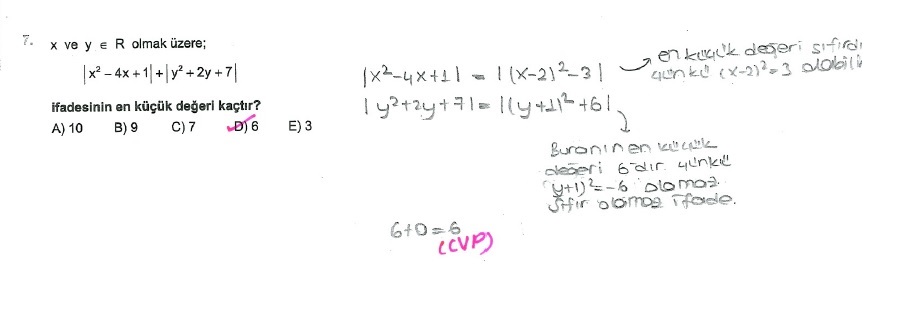 7. x ve y ∈ R olmak üzere;
|x² – 4x + 1| + |y² + 2y + 7|
ifadesinin en küçük değeri kaçtır?
A) 10 B) 9 C) 7 D) 6 E) 3
|x²-4x+1| = |(x-2)²-3|
en küçük değeri sıfırdı
çünkü (x-2)²=3 olabili
|y²+2y+7| = |(y+1)²+6|
Buranın en küçük
değeri 6'dır. çünkü
(y+1)²=-6 olamaz.
Sıfır olamaz ifade.
6+0=6
(CVP)